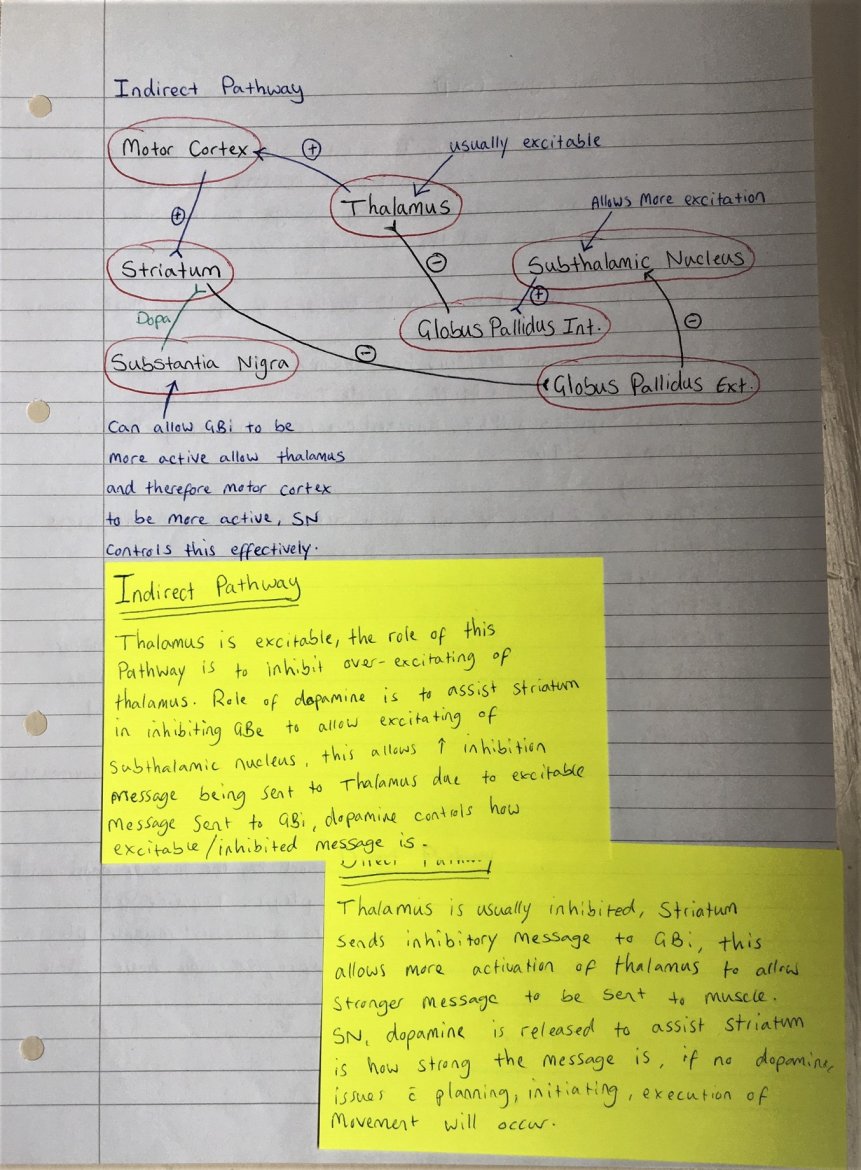 Indirect Pathway
Motor Cortex
+
usually excitable
Thalamus
Allows More excitation
+
Striatum
-
Subthalamic Nucleus
+
Dopa
Globus Pallidus Int.
-
Substantia Nigra
-
Globus Pallidus Ext.
Can allow GBi to be
more active allow thalamus
and therefore motor cortex
to be more active, SN
controls this effectively.
Indirect Pathway
Thalamus is excitable, the role of this
Pathway is to inhibit over-excitating of
thalamus. Role of dopamine is to assist striatum
in inhibiting GBe to allow excitating of
subthalamic nucleus, this allows ↑ inhibition
message being sent to Thalamus due to excitable
message sent to GBi, dopamine controls how
excitable/inhibited message is.
Direct Pathway
Thalamus is usually inhibited, Striatum
sends inhibitory message to GBi, this
allows more activation of thalamus to allow
stronger message to be sent to muscle.
SN, dopamine is released to assist striatum
is how strong the message is, if no dopamine,
issues c̄ planning, initiating, execution of
Movement will occur.